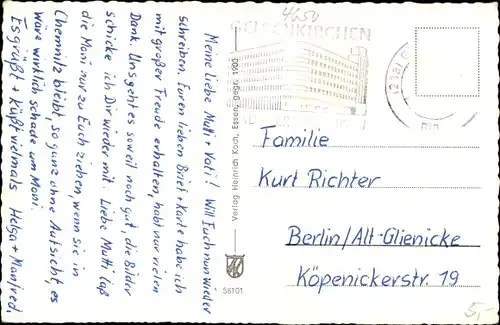 Meine liebe Mutti + Vati! Will Euch nun wieder
schreiben. Euren lieben Brief + Karte habe ich
mit großer Freude erhalten, habt nur vielen
Dank. Uns geht es soweit noch gut, die Bilder
schicke ich Dir wieder mit. Liebe Mutti laß
die Moni nur zu Euch ziehen, wenn sie in
Chemnitz bleibt, so ganz ohne Aufsicht, es
wäre wirklich schade um Moni.
Es grüßt + Küßt vielmals Helga + Manfred
Verlag Heinrich Koch, Essen, gegr. 1903
58101
4650
GELSENKIRCHEN
Familie
Kurt Richter
Berlin/Alt-Glienicke
Köpenickerstr. 19
5,-